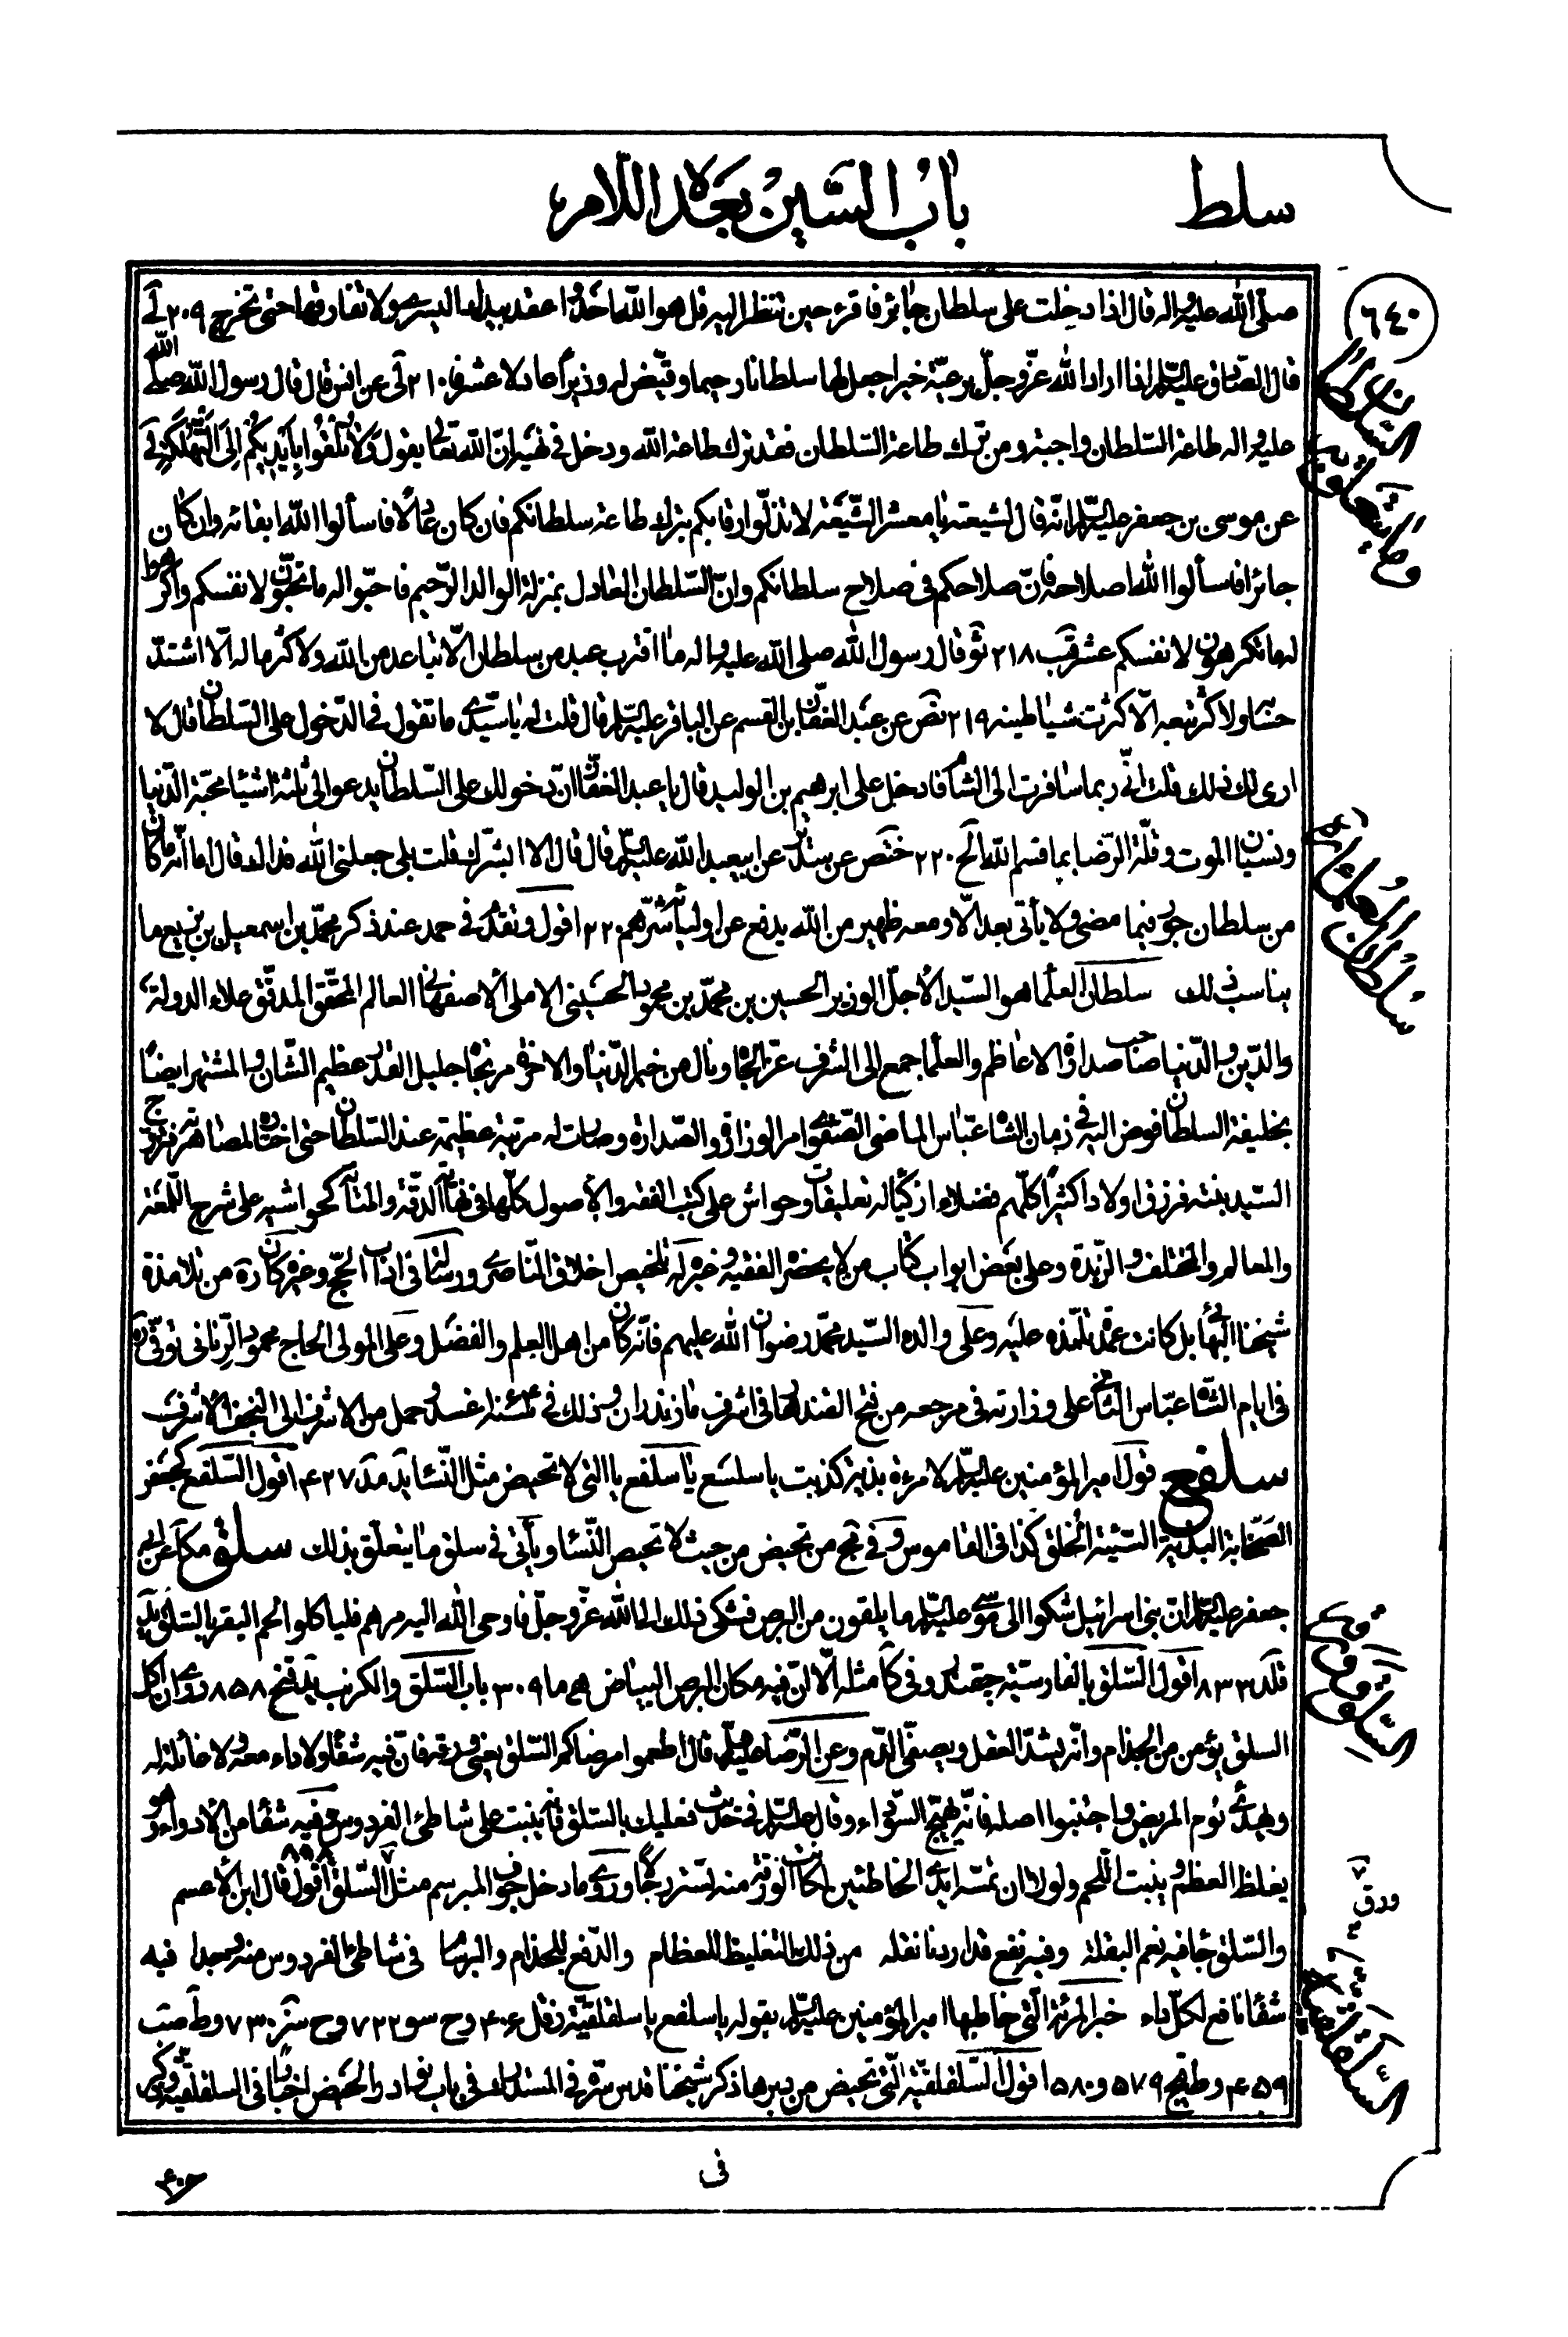 سلط
باب السين بعده اللام
٦٤٠
صلى الله عليه واله قال اذا دخلت على سلطان جائر فاقرء حين تنظر اليه قل هو الله احد واعقد بيدك اليسرى ولا تفارقها حتى تخرج ٢٠٩
قال الصادق عليه السلام اذا اراد الله عز وجل برعية خيرا جعل لها سلطانا رحيما وقيض له وزيرا عادلا عشر فا ٢١٠ عن انس قال قال رسول الله صلى الله
عليه واله طاعة السلطان واجبة ومن ترك طاعة السلطان فقد ترك طاعة الله ودخل في نهيه ان الله تعالى يقول ولا تلقوا بايديكم الى التهلكة
عن موسى بن جعفر عليه السلام انه قال لشيعته يا معشر الشيعة لا تذلوا رقابكم بترك طاعة سلطانكم فان كان عادلا فاسألوا الله ابقائه وان كان
جائرا فاسألوا الله اصلاحه فان صلاحكم في صلاح سلطانكم وان السلطان العادل بمنزلة الوالد الرحيم فاحبوا له ما تحبون لانفسكم واكرهوا
له ما تكرهون لانفسكم عشر قب ٢١٨ ثو قال رسول الله صلى الله عليه واله ما اقترب عبد من سلطان الا تباعد من الله ولا كثر ماله الا اشتد
حسابه ولا كثر تبعه الا كثرت شياطينه ٢١٩ نص عن عبد الغفار بن القسم عن الباقر عليه السلام قال قلت له يا سيدي ما تقول في الدخول على السلطان قال لا
ارى لك ذلك قلت اني ربما سافرت الى الشام فادخل على ابرهيم بن الوليد قال يا عبد الغفار ان دخولك على السلطان يدعو الى ثلثة اشياء محبة الدنيا
ونسيان الموت وقلة الرضا بما قسم الله الخ ٢٢٠ ختص عن سدير عن ابيعبد الله عليه السلام قال قال الا ابشرك قلت بلى جعلني الله فداك قال اما انه ما كان
من سلطان جور فيما مضى ولا يأتي بعد الا ومعه ظهير من الله يدفع عن اوليائه شرهم ٢٢٠ اقول وتقدم في حمد عند ذكر محمد بن اسمعيل بن بزيع ما
يناسب ذلك سلطان العلماء هو السيد الاجل الوزير الحسين بن محمد بن محمود الحسيني الاملي الاصفهاني العالم المحقق المدقق علاء الدولة
والدين والدنيا صاحب صدارة الاعاظم والعلماء جمع الى الشرف عز الجاه ونال من خير الدنيا والاخرة مرتجاه جليل القدر عظيم الشان والمشتهر ايضا
بخليفة السلطان فوض اليه في زمان الشاه عباس الماضي الصفوي امر الوزارة والصدارة وصارت له مرتبة عظيمة عند السلطان حتى اختاره لمصاهرته فزوج
السيد بنته فرزق اولادا كثيرا كلهم فضلاء ازكياء له تعليقات وحواش على كتب الفقه والاصول كلها في نهاية الدقة والمتانة كحواشيه على شرح اللمعة
والمعالم والمختلف والزبدة وعلى بعض ابواب كتاب من لا يحضره الفقيه وغيره له تلخيص اخلاق الناصري ورسالة في اداب الحج وغيره كان ره من تلامذة
شيخنا البهائي بل كانت عمدة تلمذه عليه وعلى والده السيد محمد رضوان الله عليهم فانه كان من اهل العلم والفضل وعلى المولى الحاج محمود الرناني توفي ره
في ايام الشاه عباس الثاني على وزارته في مرجعه من فتح القندهار في اشرف مازندران وذلك في سنة غسد وحمل من الاشرف الى النجف الاشرف
سلفع قول امير المؤمنين عليه السلام لامرءة بذية كذبت يا سلسع يا سلفع يا التي لا تحيض مثل النساء يد مد ٤٢٧ اقول السلفع كجعفر
الصخابة البذية السيئة الخلق كذا في القاموس وفي مج من تحيض من حيث لا تحيض النساء ويأتي في سلق ما يتعلق بذلك سلق مكا عن ابي
جعفر عليه السلام ان بني اسرائيل شكوا الى موسى عليه السلام ما يلقون من البرص فشكى ذلك الى الله عز وجل فاوحى الله اليه مرهم فليأكلوا لحم البقر بالسلق يد
فلد ٨٣٣ اقول السلق بالفارسية چقندر وفي كا مثله الا ان فيه مكان البرص البياض ه ما ٣٠٩ باب السلق والكرنب يد قنج ٨٥٨ روى ان اكل
السلق يؤمن من الجذام وانه يشد العقل ويصفي الدم وعن الرضا عليه السلام قال اطعموا مرضاكم السلق يعني ورقه فان فيه شفاء ولا داء معه ولا غائلة له
ويهدئ نوم المريض واجتنبوا اصله فانه يهيج السوداء وقال عليه السلام في حديث فعليك بالسلق فانه ينبت على شاطئ الفردوس وفيه شفاء من الادواء وهو
يغلظ العظم وينبت اللحم ولولا ان تمسه ايدي الخاطئين لكانت الورقة منه تستر رجالا وروى ما دخل جوف المبرسم مثل السلق ٨٥٨ اقول قال ابن الاعسم
والسلق جاء فيه نعم البقلة وفيه نفع قد اردنا نقله من ذلك التغليظ للعظام والدفع للجذام والبرسام في شاطئ الفردوس منه وجدا فيه
شفاء نافع لكل داء خبر المرئة التي خاطبها امير المؤمنين عليه السلام بقوله يا سلفع يا سلقلقية ز قل ٤٠٦ وح سو ٧٢٢ وح سز ٧٣٠ وط صب
٤٥٩ وط قيج ٥٧٩ و ٥٨٠ اقول السلقلقية التي تحيض من دبرها ذكر شيخنا قدس سره في المستدرك في باب نوادر الحيض اخبارا في السلقلقية وذكرى
في
السلطان
وما يتعلق به
سلطان العلماء ره
السلق وفيه
ورق
السلقلقية